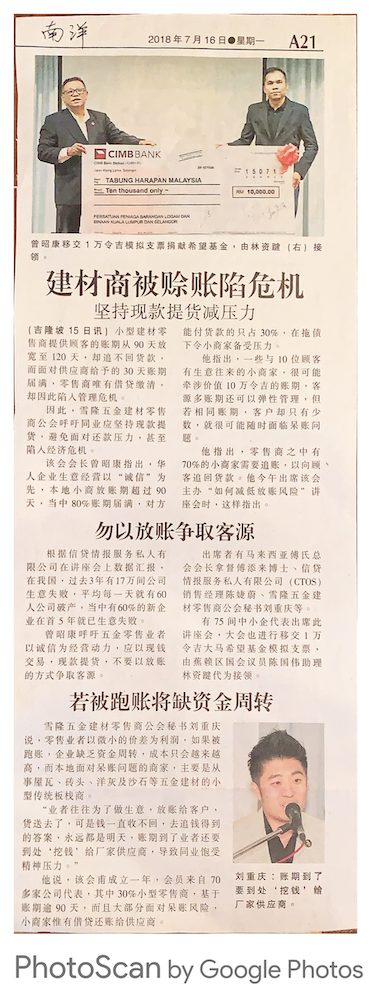 南洋
2018年7月16日●星期一 A21
CIMB BANK
TABUNG HARAPAN MALAYSIA
Ten thousand only ~
RM 10,000.00
150718
PERSATUAN PENIAGA BARANGAN LOGAM DAN
BINAAN KUALA LUMPUR DAN SELANGOR
曾昭康移交1万令吉模拟支票捐献希望基金,由林资踺(右)接
领。
建材商被赊账陷危机
坚持现款提货减压力
(吉隆坡15日讯)小型建材零
售商提供顾客的账期从90天放
宽至120天,却追不回货款,
而面对供应商给予的30天账期
届满,零售商唯有借贷缴清,
却因此陷入管理危机。
因此,雪隆五金建材零售
商公会呼吁同业应坚持现款提
货,避免面对还款压力,甚至
陷入经济危机。
该会会长曾昭康指出,华
人企业生意经营以“诚信”为
先,本地小商放账期超过90
天,当中80%账期届满,对方
能付货款的只占30%,在拖债
下令小商家备受压力。
他指出,一些与10位顾客
有生意往来的小商家,很可能
牵涉价值10万令吉的账期,客
源多账期还可以弹性管理,但
若相同账期,客户却只有少
数,就很可能随时面临呆账问
题。
他指出,零售商之中有
70%的小商家需要追账,以向顾
客追回货款。他今午出席该会
主办“如何减低放账风险”讲
座会时,这样指出。
勿以放账争取客源
根据信贷情报服务私人有
限公司在讲座会上数据汇报,
在我国,过去3年有17万间公司
生意失败,平均每一天就有60
人公司破产,当中有60%的新企
业在首5年就已生意失败。
曾昭康呼吁五金零售业者
以诚信为经营动力,应以现钱
交易,现款提货,不要以放账
的方式争取客源。
出席者有马来西亚傅氏总
会会长拿督傅添来博士,信贷
情报服务私人有限公司(CTOS)
销售经理陈婕蔚、雪隆五金建
材零售商公会秘书刘重庆等。
有75间中小企代表出席此
讲座会,大会也进行移交1万
令吉大马希望基金模拟支票,
由蕉赖区国会议员陈国伟助理
林资踺代为接领。
若被跑账将缺资金周转
雪隆五金建材零售商公会秘书刘重庆
说,零售业者以微小的价差为利润,如果被
跑账,企业缺乏资金周转,成本只会越来越
高,而本地面对呆账问题的商家,主要是从
事屋瓦、砖头、洋灰及沙石等五金建材的小
型传统板栈商。
“业者往往为了做生意,放账给客户,
贷送去了,可是钱一直收不回,去追钱得到
的答案,永远都是明天,账期到了业者还要
到处‘挖钱’给厂家供应商,导致同业饱受
精神压力。”
他说,该会甫成立一年,会员来自70
多家公司代表,其中30%小型零售商,基于
账期逾90天,而且大部分面对呆账风险,
小商家惟有借贷还账给供应商。
刘重庆:账期到了
要到处‘挖钱’给
厂家供应商。
PhotoScan by Google Photos